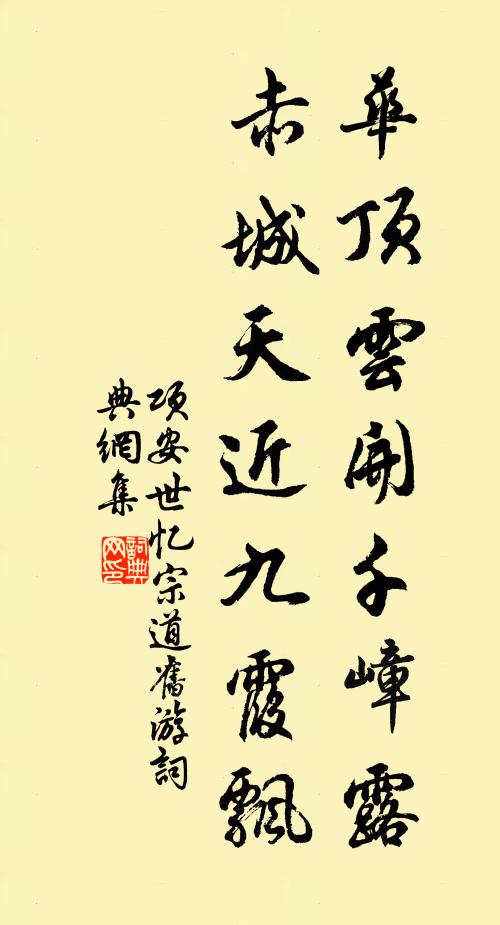 華頂雲開千嶂露
赤城天近九霞飄
項安世忆宗道舊游詞
典網集
詞典网印